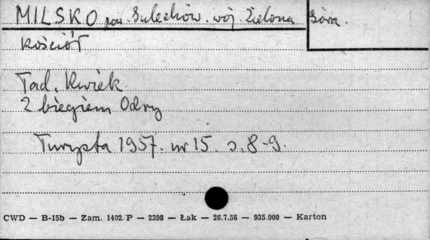 MILSKO pow. Sulechów. wój. Zielona Góra.
Kościół
Tad. Kwiek
Z biegiem Odry
Turysta 1957. nr 15. s. 8-9.
CWD — B-15b — Zam. 1402/P — 2398 — Łak — 26.7.58 — 935.000 — Karton